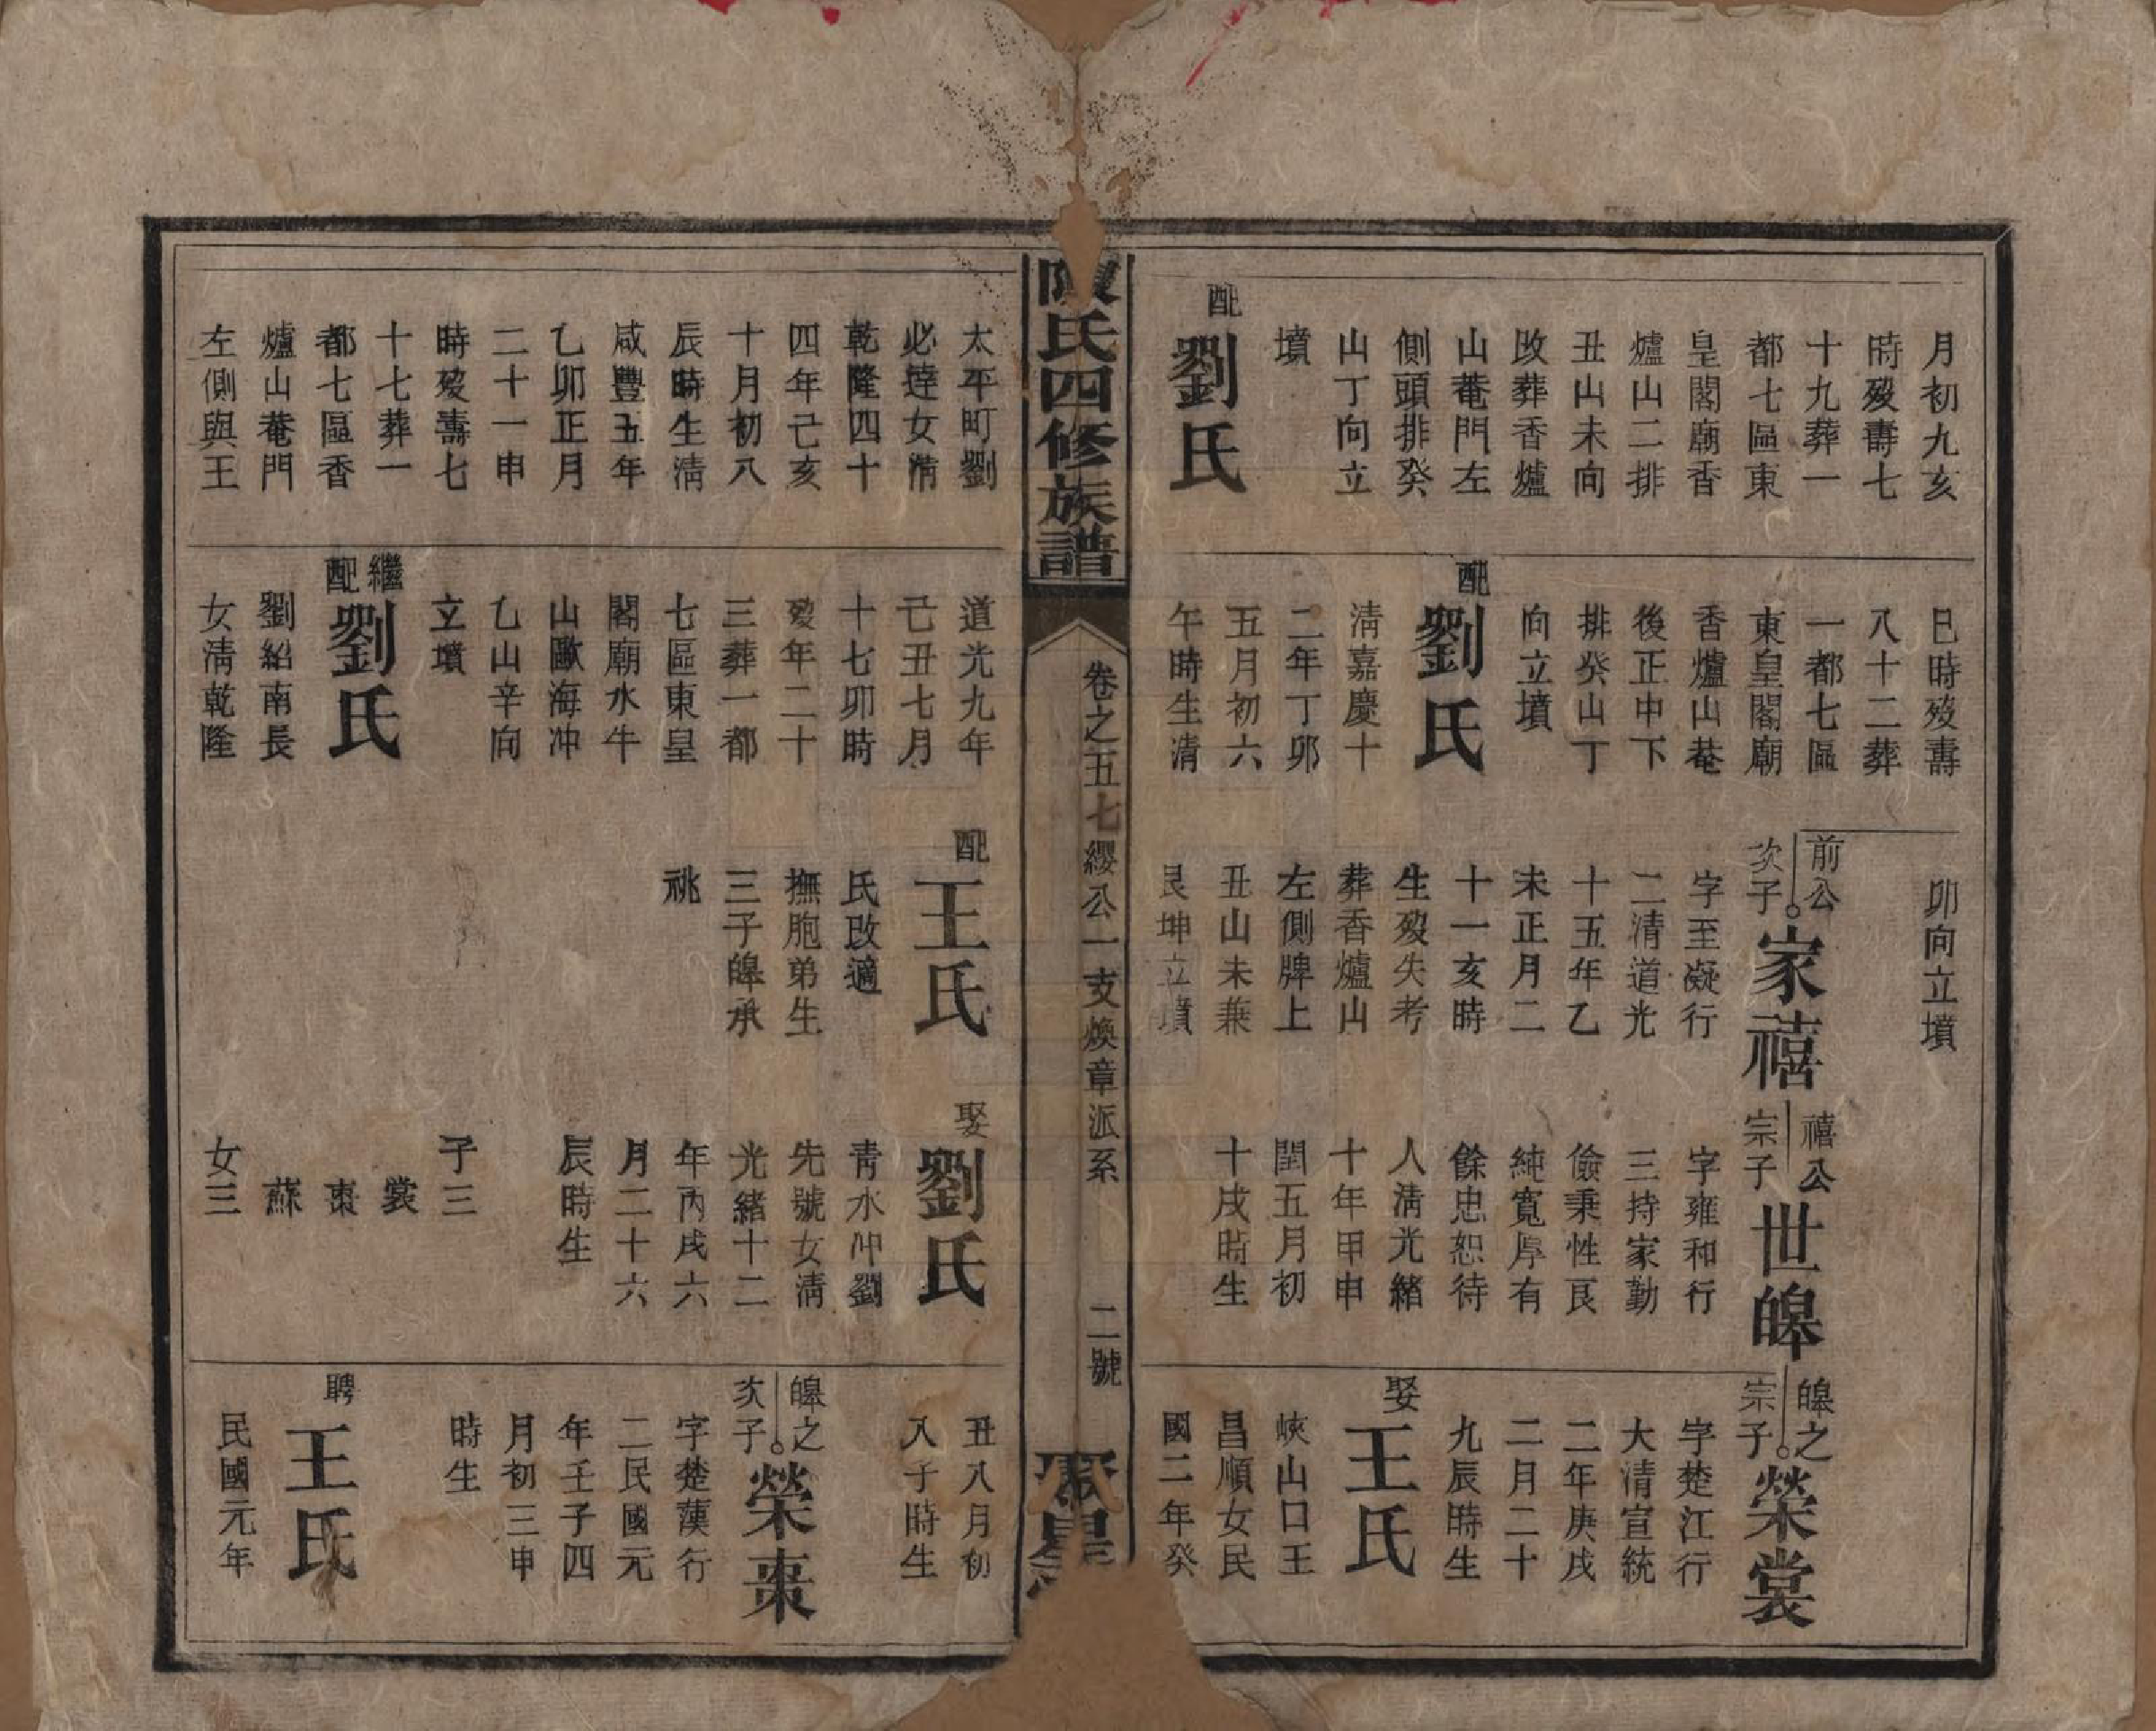 月初九亥
時歿壽七
十九葬一
都七區東
皇閣廟香
爐山二排
丑山未向
改葬香爐
山菴門左
側頭排癸
山丁向立
墳
配
劉氏
巳時歿壽
八十二葬
一都七區
東皇閣廟
香爐山菴
後正中下
排癸山丁
向立墳
配
劉氏
清嘉慶十
二年丁卯
五月初六
午時生清
卯向立墳
前公
次子
家禧
字至凝行
二清道光
十五年乙
未正月二
十一亥時
生歿失考
葬香爐山
左側牌上
丑山未兼
艮坤立墳
禧公
宗子
世皞
字雍和行
三持家勤
儉秉性良
純寬厚有
餘忠恕待
人清光緒
十年甲申
閏五月初
十戌時生
皞之
宗子
榮裳
字楚江行
大清宣統
二年庚戌
二月二十
九辰時生
娶
王氏
峽山口王
昌順女民
國二年癸
陳氏四修族譜
卷之五七纓公一支煥章派系
二號
聚星
太平町劉
必達女清
乾隆四十
四年己亥
十月初八
辰時生清
咸豐五年
乙卯正月
二十一申
時歿壽七
十七葬一
都七區香
爐山菴門
左側與王
道光九年
己丑七月
十七卯時
歿年二十
三葬一都
七區東皇
閣廟水牛
山歐海冲
乙山辛向
立墳
繼
配
劉氏
劉紹南長
女清乾隆
配
王氏
氏改適
撫胞弟生
三子皞承
祧
娶
劉氏
青水冲劉
先號女清
光緒十二
年丙戌六
月二十六
辰時生
子三
裳
棗
蘇
女三
丑八月初
入子時生
皞之
次子
榮棗
字楚漢行
二民國元
年壬子四
月初三申
時生
聘
王氏
民國元年